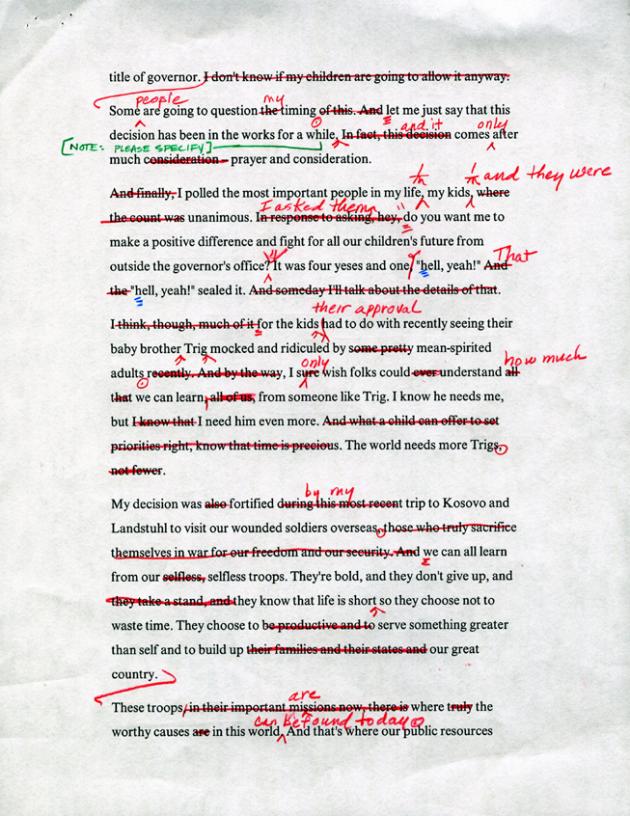 title of governor. I don't know if my children are going to allow it anyway.
people my
Some are going to question the timing of this. And let me just say that this
and it only
decision has been in the works for a while, In fact, this decision comes after
[NOTE: PLEASE SPECIFY]
much consideration - prayer and consideration.
and they were
And finally, I polled the most important people in my life, my kids, where
I asked them
the count was unanimous. In response to asking, hey, do you want me to
make a positive difference and fight for all our children's future from
outside the governor's office? It was four yeses and one, "hell, yeah!" And
That
the "hell, yeah!" sealed it. And someday I'll talk about the details of that.
their approval
I think, though, much of it for the kids had to do with recently seeing their
baby brother Trig mocked and ridiculed by some pretty mean-spirited
only how much
adults recently. And by the way, I sure wish folks could ever understand all
that we can learn, all of us, from someone like Trig. I know he needs me,
but I know that I need him even more. And what a child can offer to set
priorities right, know that time is precious. The world needs more Trigs,
not fewer.
by my
My decision was also fortified during this most recent trip to Kosovo and
Landstuhl to visit our wounded soldiers overseas, those who truly sacrifice
themselves in war for our freedom and our security. And we can all learn
from our selfless, selfless troops. They're bold, and they don't give up, and
they take a stand, and they know that life is short so they choose not to
waste time. They choose to be productive and to serve something greater
than self and to build up their families and their states and our great
country.
are
These troops, in their important missions now, there is where truly the
can be found today
worthy causes are in this world. And that's where our public resources